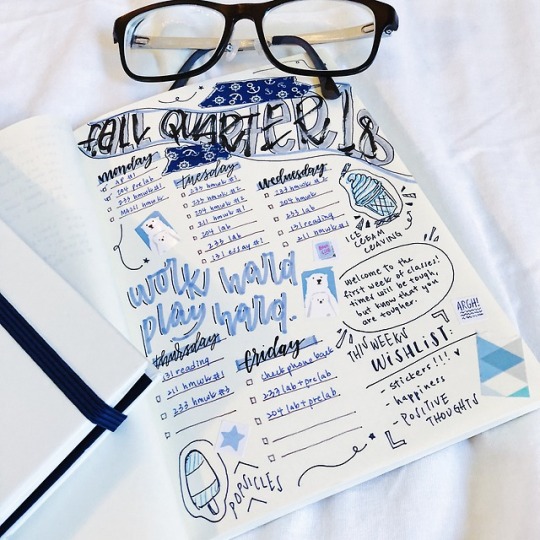 FALL QUARTER 18
monday
204 prelab
233 hmwk #1
MA211 hmwk
tuesday
233 hmwk #2
204 hmwk #1
211 hmwk #1
204 lab
233 lab
131 essay #1
wednesday
233 hmwk
204 hmwk
233 lab
131 reading
211 hmwk #2
ICE
CREAM
CRAVING
work hard
play hard.
welcome to the
first week of classes!
times will be tough,
but know that you
are tougher.
ARGH!
thursday
131 reading
211 hmwk #2
233 hmwk #3
friday
check phone back
233 lab + prelab
204 lab + prelab
THIS WEEK'S
WISHLIST:
- stickers!!!
- happiness
- POSITIVE
THOUGHTS
POPSICLES